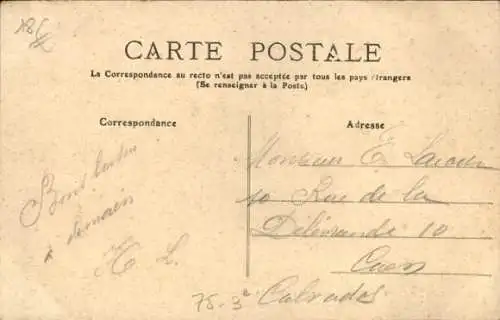 CARTE POSTALE
La Correspondance au recto n'est pas acceptée par tous les pays étrangers
(Se renseigner à la Poste.)
Correspondance
Adresse
à demain
Monsieur E.
10 Rue de la
Délivrande 10
Caen
Calvados
75-3e